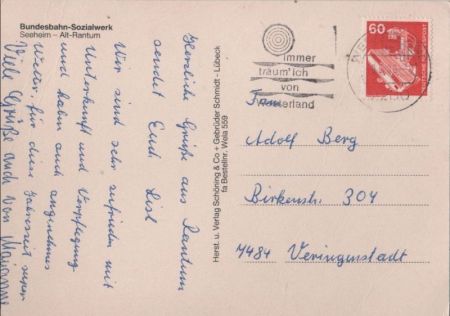 Bundesbahn-Sozialwerk
Seeheim - Alt-Rantum
Herzliche Grüße aus Rantum
sendet Euch Lisl
Wir sind sehr zufrieden mit
Unterkunft und Verpflegung
und haben auch angenehmes
Wetter, für diese Jahreszeit super
Viele Grüße auch von Marianne
Herst. u. Verlag Schöning & Co + Gebrüder Schmidt - Lübeck
fa Bestellnr. Wela 559
immer
träum' ich
von
Westerland
60
DEUTSCHE BUNDESPOST
Fam.
Adolf Berg
Birkenstr. 304
7484 Veringenstadt